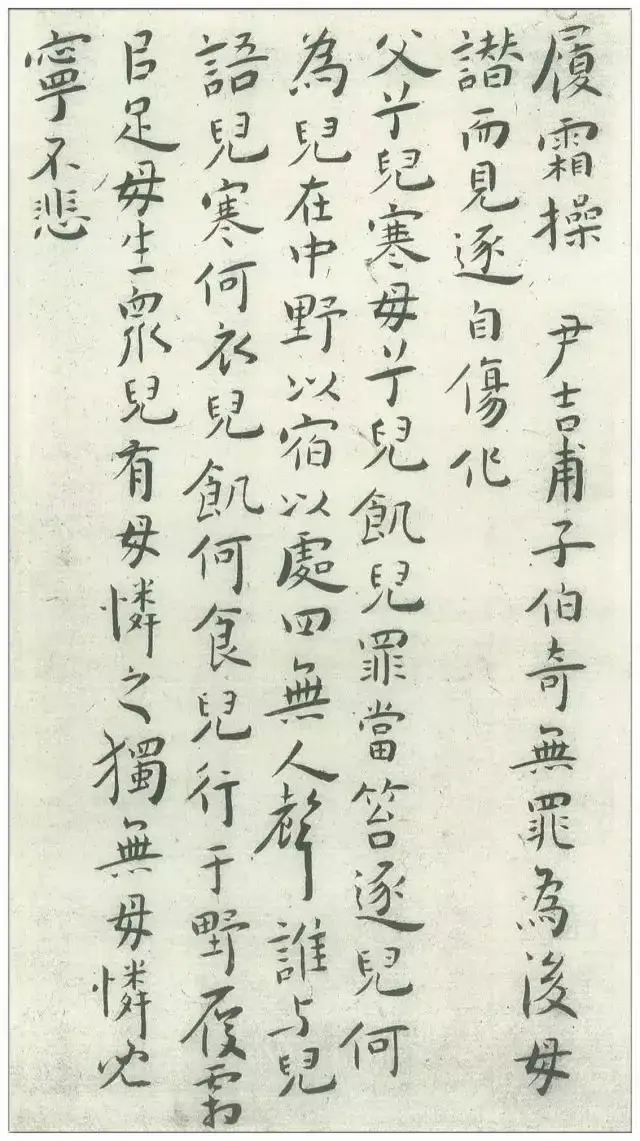 履霜操　尹吉甫子伯奇無罪為後母
譖而見逐自傷作
父兮兒寒母兮兒飢兒罪當笞逐兒何
為兒在中野以宿以處四無人聲誰與兒
語兒寒何衣兒飢何食兒行于野履霜
以足母生眾兒有母憐之獨無母憐兒
寧不悲